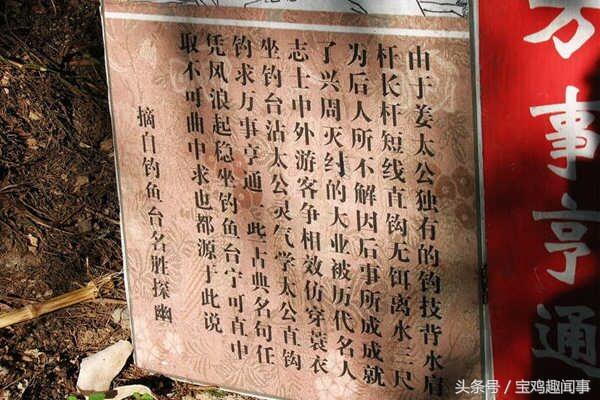 万事亨通
由于姜太公独有的钓技背水肩
杆长杆短线直钩无饵离水三尺
为后人所不解因后事所成成就
了兴周灭纣的大业被历代名人
志士中外游客争相效仿穿蓑衣
坐钓台沾太公灵气学太公直钩
钓求万事亨通 此古典名句任
凭风浪起稳坐钓鱼台宁可直中
取不可曲中求也都源于此说
摘自钓鱼台名胜探幽
头条号 / 宝鸡趣闻事